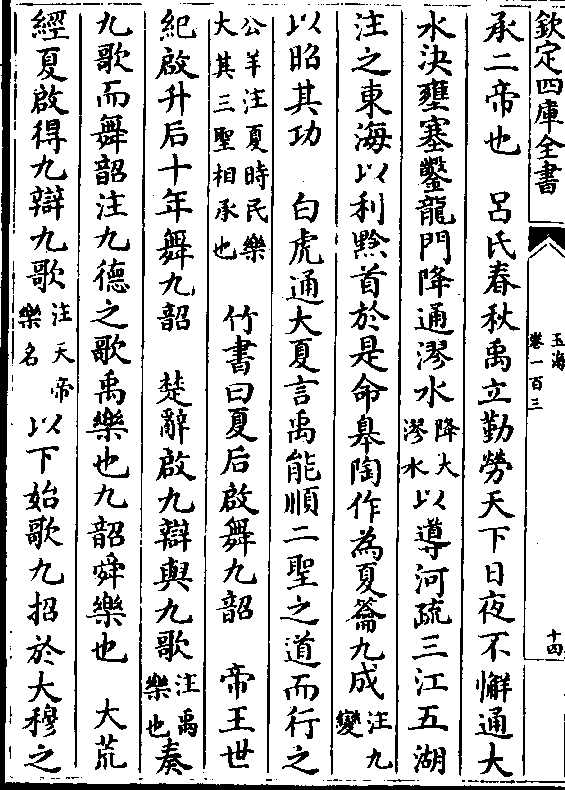 欽定四庫全書
玉海
卷一百三
十四
承二帝也　呂氏春秋禹立勤勞天下日夜不懈通大
水決壅塞鑿龍門降通漻水降大漻水以導河疏三江五湖
注之東海以利黔首於是命臯陶作為夏籥九成注九變
以昭其功　白虎通大夏言禹能順二聖之道而行之
公羊注夏時民樂大其三聖相承也　竹書曰夏后啟舞九韶　帝王世
紀啟升后十年舞九韶　楚辭啟九辯與九歌注禹樂也奏
九歌而舞韶注九德之歌禹樂也九韶舜樂也　大荒
經夏啟得九辯九歌注天帝樂名以下始歌九招於大穆之